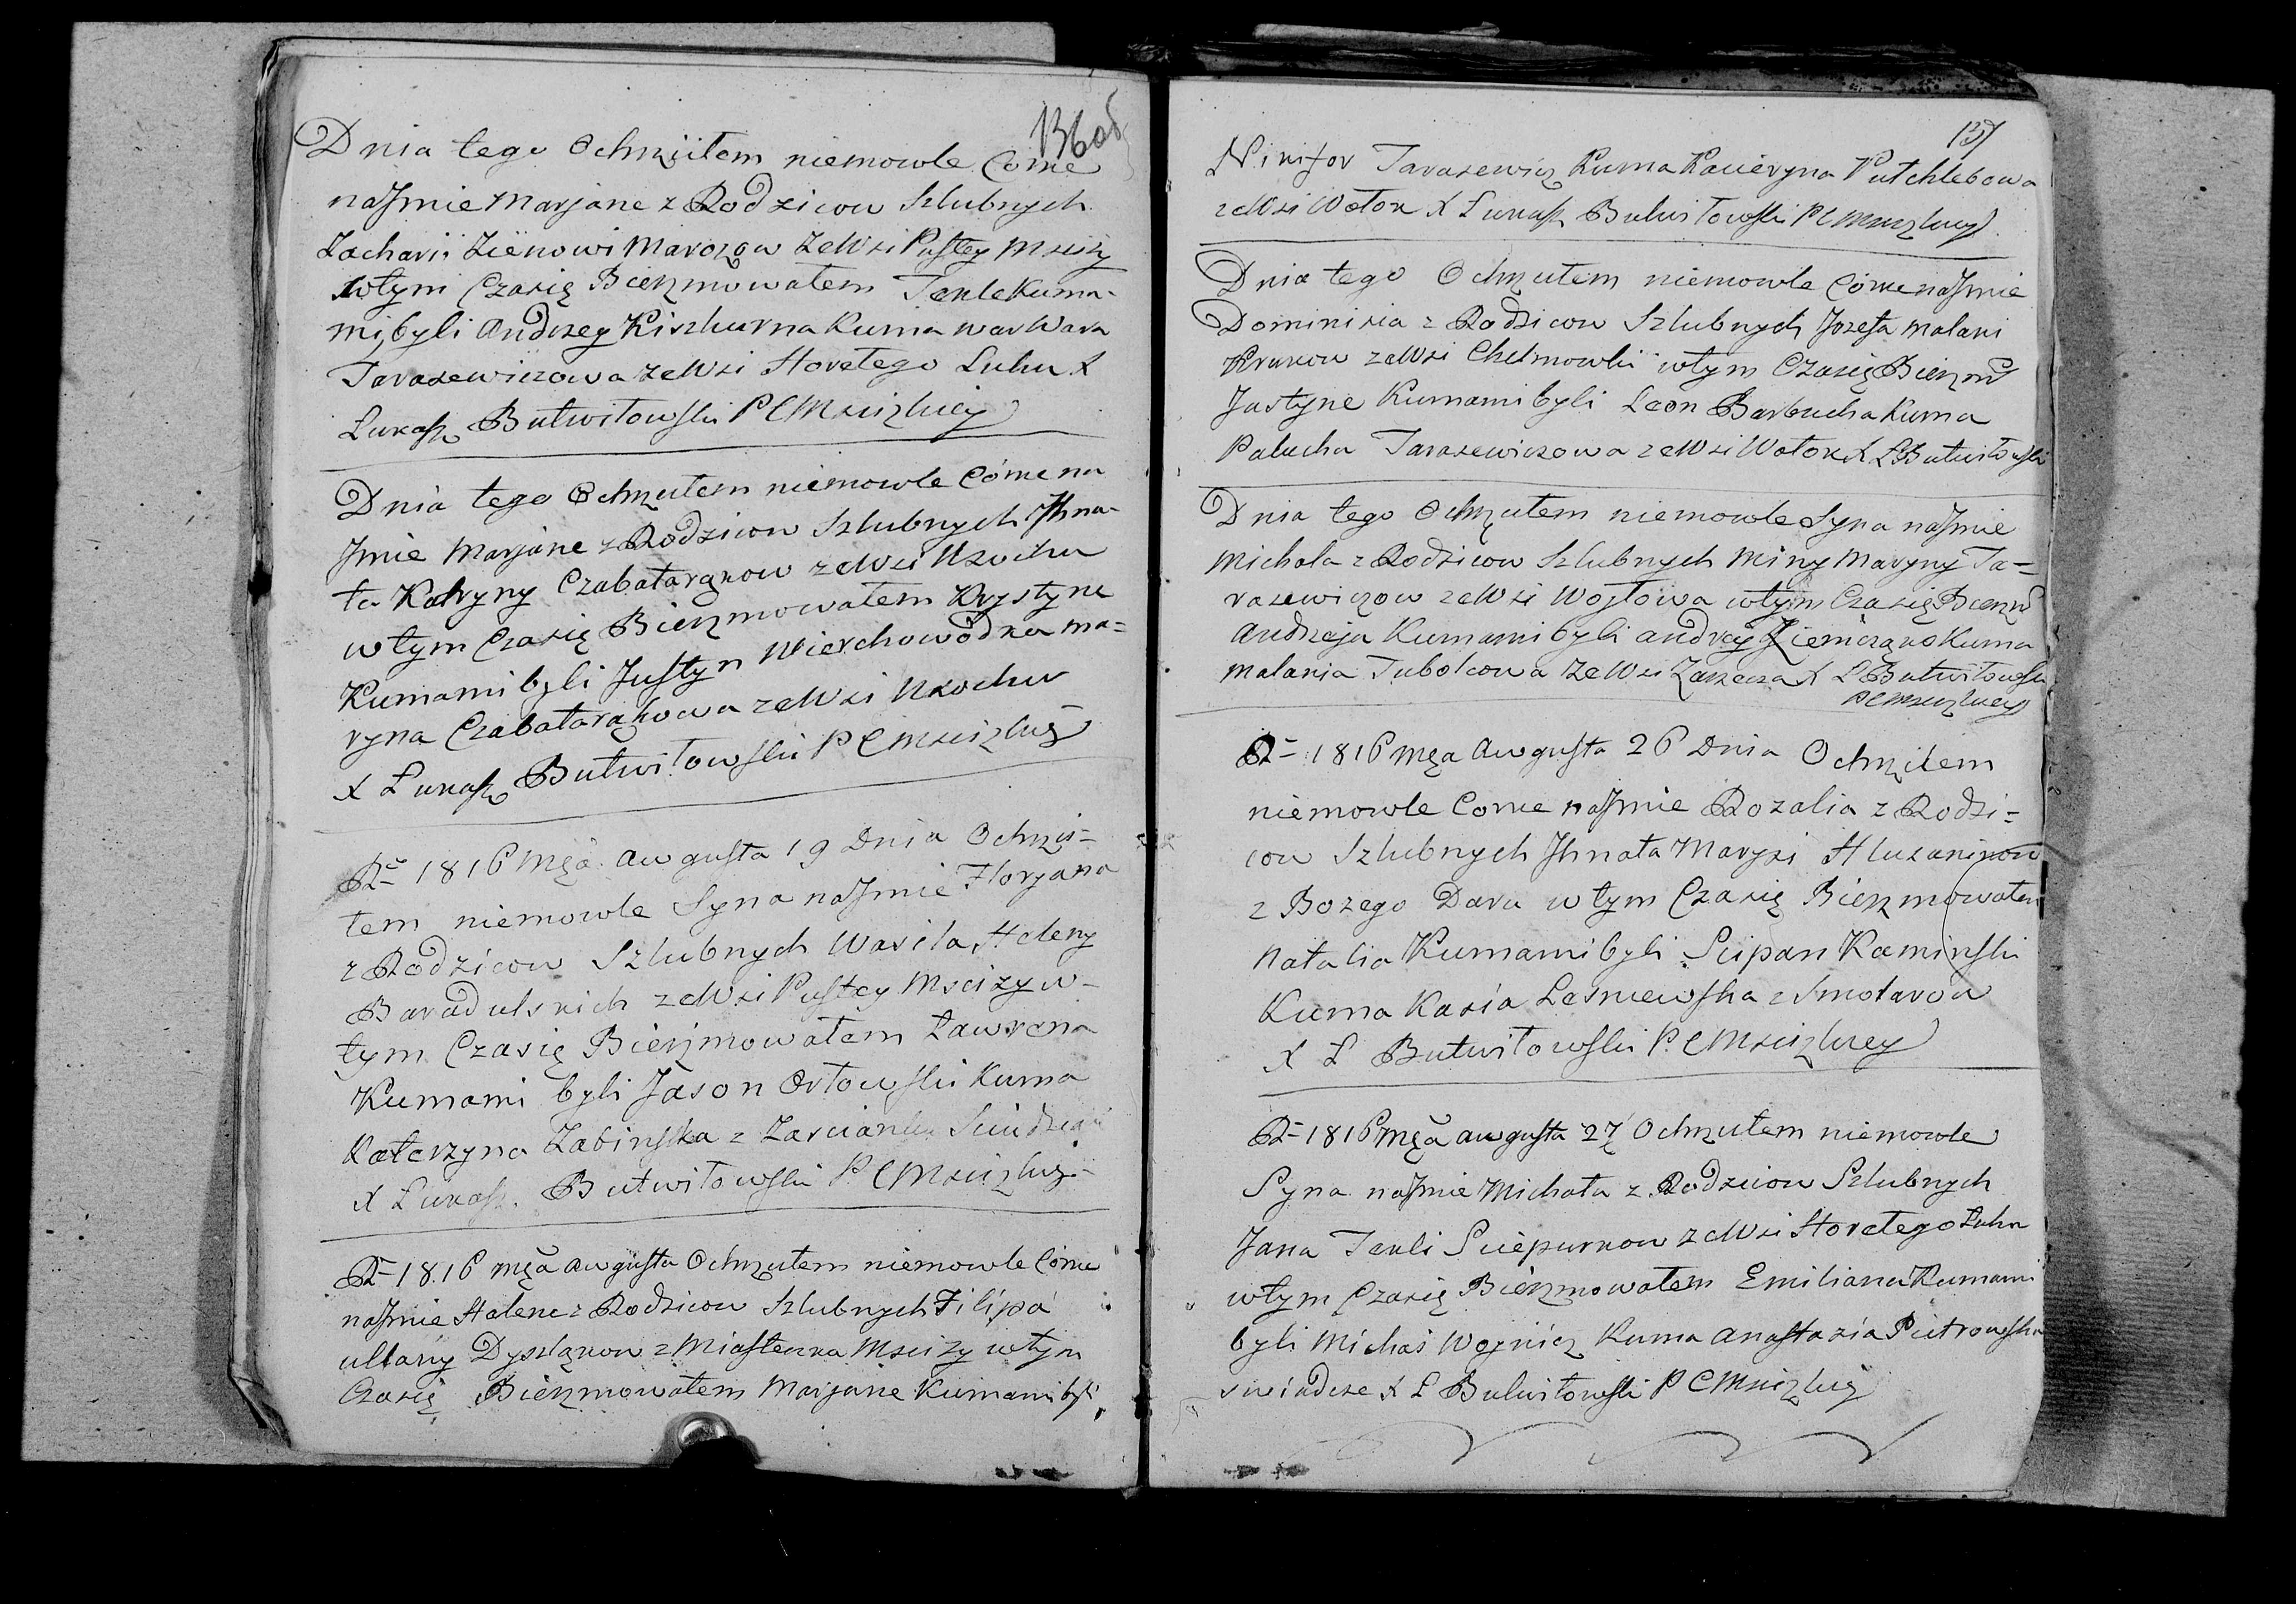 136об
Dnia tego Ochrzciłem niemowle Córne
naJmie Marjane z Rodzicow Szlubnych
Zacharii Zienowi Marozow ze Wsi Pustey Mscizy
wtym Czasię Bierzmowałem Tekle Kuma-
mi byli Andrzey Kiszkurna Kuma Warwara
Tarasewiczowa ze Wsi Horełego Luhu X
Łukasz Butwiłowski P C Mscizkiey
Dnia tego Ochrzułem niemowle Córne na
Jmie Marjane z Rodzicow Szlubnych Jhna-
ta Katryny Czabatarąkow ze Wsi Uzochu
wtym Czasię Bierzmowałem Krystyne
Kumami byli Justyn Wierchowodka Ma=
ryna Czabatarąkowa ze Wsi Uzochu
X Łukasz Butwiłowski P C Mscizkiy
R= 1816 Mca Awgusta 19 Dnia Ochrzci=
łem niemowle Syna naJmie Floryana
z Rodzicow Szlubnych Wasila Heleny
Baradulskich ze Wsi Pustey Mscizy w-
tym Czasię Bierzmowałem Ławrena
Kumami byli Jason Orłowski Kuma
Katerzyna Zabinska z Zascianku
X Łukasz Butwiłowski P. C Mscizkiy
R= 1816 Mca Awgusta Ochrzułem niemowle Córne
naJmie Halene z Rodzicow Szlubnych Filipa
Ullany Dyszląkow z Miasteczka Mscizy wtym
Czasię Bierzmowałem Marjane Kumami byli
137
Nikifor Tarasewicz Kuma Kacieryna Putchlebowa
ze Wsi Wołok X Łukasz Butwiłowski P C Mscizkiey
Dnia tego Ochrzułem niemowle Córne naJmie
Dominikia z Rodzicow Szlubnych Jozefa Malani
Krukow ze Wsi Chełmowki wtym Czasię Bierzm
Justyne Kumami byli Leon Barbucha Kuma
Palucha Tarasewiczowa ze Wsi Wołok X Ł Butwiłowski
Dnia tego Ochrzułem niemowle Syna naJmie
Michała z Rodzicow Szlubnych Miny Maryny Ta=
rasewiczow ze Wsi Wojtowa wtym Czasię Bierzm
Andrzeja Kumami byli Andrey Ziemczonok Kuma
Malania Tubolcowa ze Wsi Zarzecza X Ł Butwiłowski
P C Mscizkiey
R= 1816 Mca Awgusta 26 Dnia Ochrzciłem
niemowle Corne naJmie Rozalia z Rodzi=
cow Szlubnych Jhnata Marysi Hluzaninow
z Bozego Daru wtym Czasię Bierzmowałem
Natalia Kumami byli Scipan Kaminski
Kuma Kasia Lesniewska z Smolarow
X Ł Butwiłowski P. C Mscizkiey
R= 1816 Mca Awgusta 27 Ochrzułem niemowle
Syna naJmie Michała z Rodzicow Szlubnych
Jana Tekli Sciepurkow ze Wsi Horełego Luhu
wtym Czasię Bierzmowałem Emiliana Kumami
byli Michaś Woynicz Kuma Anastazia Pietrowska
swiadcze X Ł Butwiłowski P C Mscizkiy